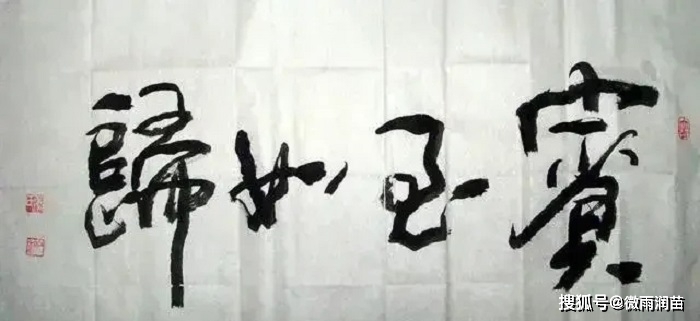 賓至如歸
搜狐号@微雨润苗